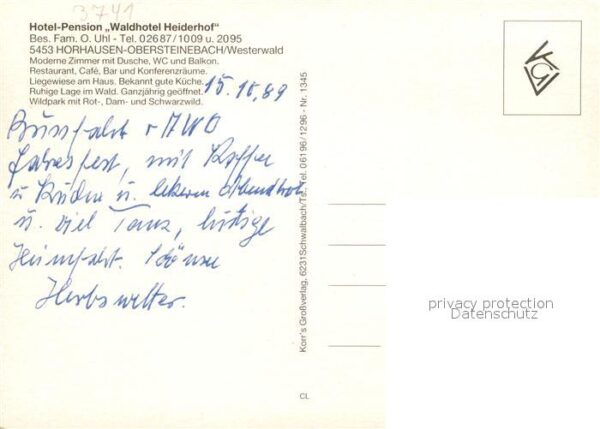 3741
Hotel-Pension „Waldhotel Heiderhof"
Bes. Fam. O. Uhl - Tel. 02687/1009 u. 2095
5453 HORHAUSEN-OBERSTEINEBACH/Westerwald
Moderne Zimmer mit Dusche, WC und Balkon.
Restaurant, Café, Bar und Konferenzräume.
Liegewiese am Haus. Bekannt gute Küche.
Ruhige Lage im Wald. Ganzjährig geöffnet.
Wildpark mit Rot-, Dam- und Schwarzwild.
15.10.89
Bussfahrt v AWO
Jahresfest, mit Kaffee
u Kuchen u. leckerem Abendbrot
u. viel Tanz, lustige
Heimfahrt. Schönes
Herbswetter.
Korr's Großverlag, 6231 Schwalbach/Ts. Tel. 06196/1296 - Nr. 1345
CL
privacy protection
Datenschutz